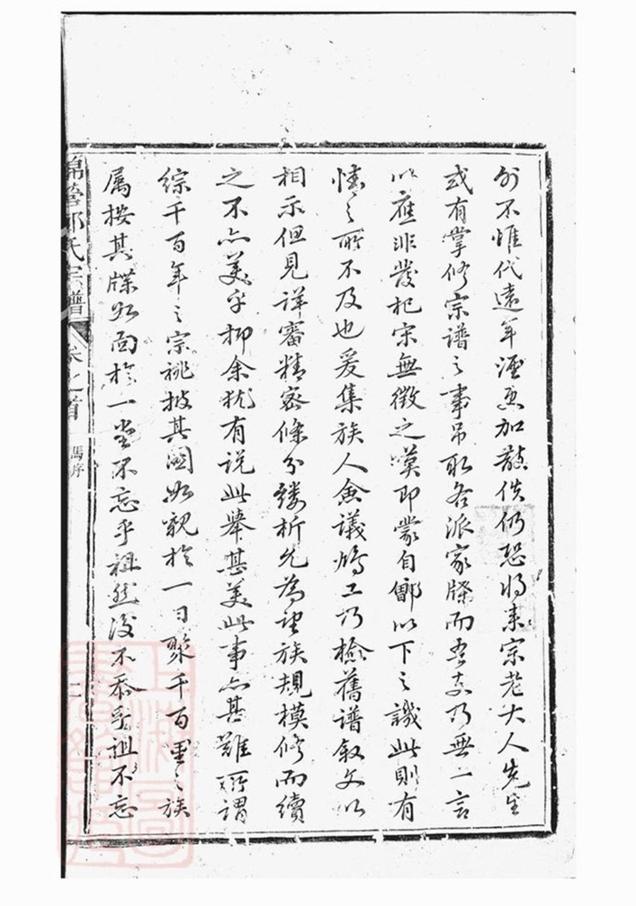 外不惟代遠年湮更加散佚仍恐將来宗老大人先生
或有掌修宗谱之事吊取各派家牒而吾支乃無一言
以應非發杞宋無徵之嘆即蒙自鄶以下之譏此則有
情之所不及也爰集族人僉議鳩工乃檢舊譜叙文以
相示但見詳審精密條分縷析允為望族規模修而續
之不亦美乎抑余犹有説此舉甚美此事亦甚難所謂
綜千百年之宗祧披其圖如觀於一日聚千百里之族
属按其牒如面於一堂不忘乎祖然後不忝乎祖不忘
錦營鄭氏宗譜
卷之首
馬序
二